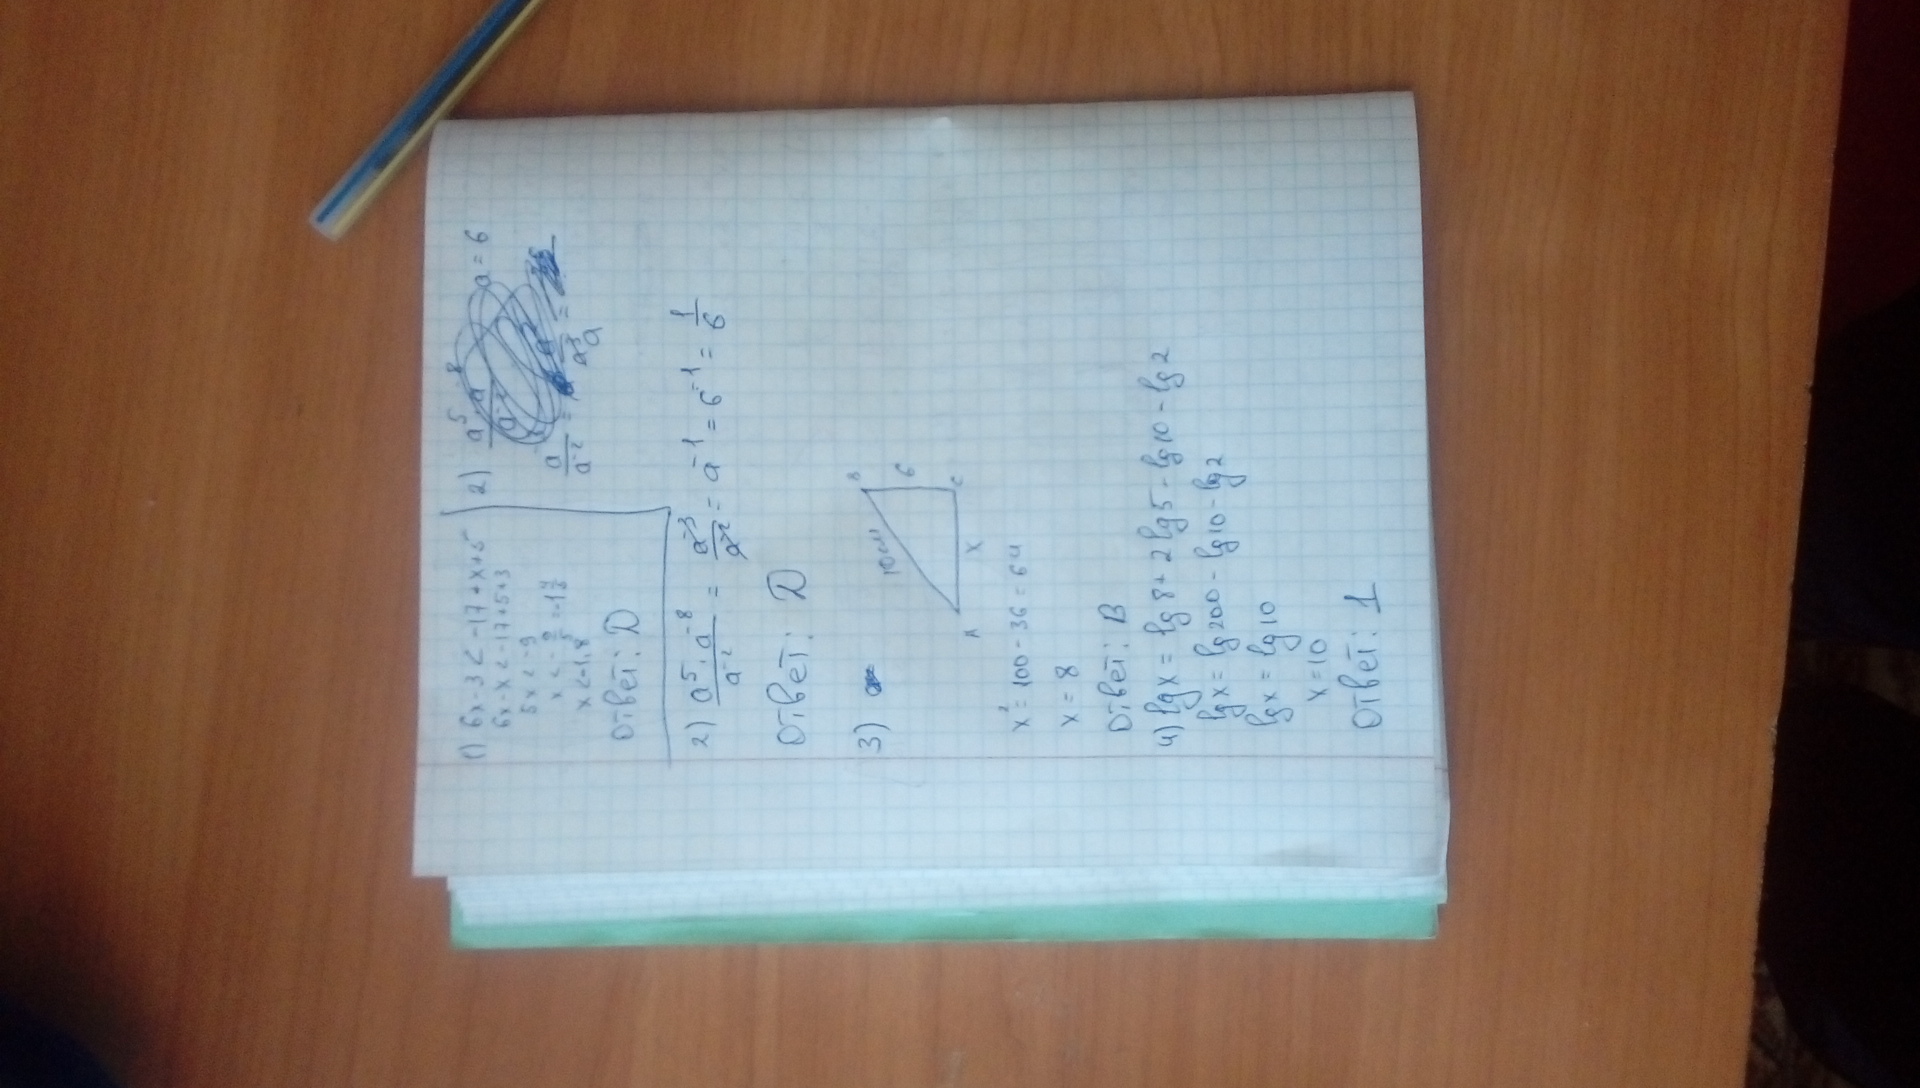 1) 6x-3<-17+x+5
6x-x<-17+5+3
5x<-9
x<-9/5=-1
x<-1,8
Ответ: D
2) a⁵·a⁻⁸/a⁻² a=6
a/a⁻² =
2) a⁵·a⁻⁸/a⁻² = a⁻³/a⁻² = a⁻¹ = 6⁻¹ = 1/6
Ответ: D
3)
10см
B
6
C
x
A
x²=100-36=64
x=8
Ответ: B
4) lg x = lg 8 + 2 lg 5 - lg 10 - lg 2
lg x = lg 200 - lg 10 - lg 2
lg x = lg 10
x=10
Ответ: 1